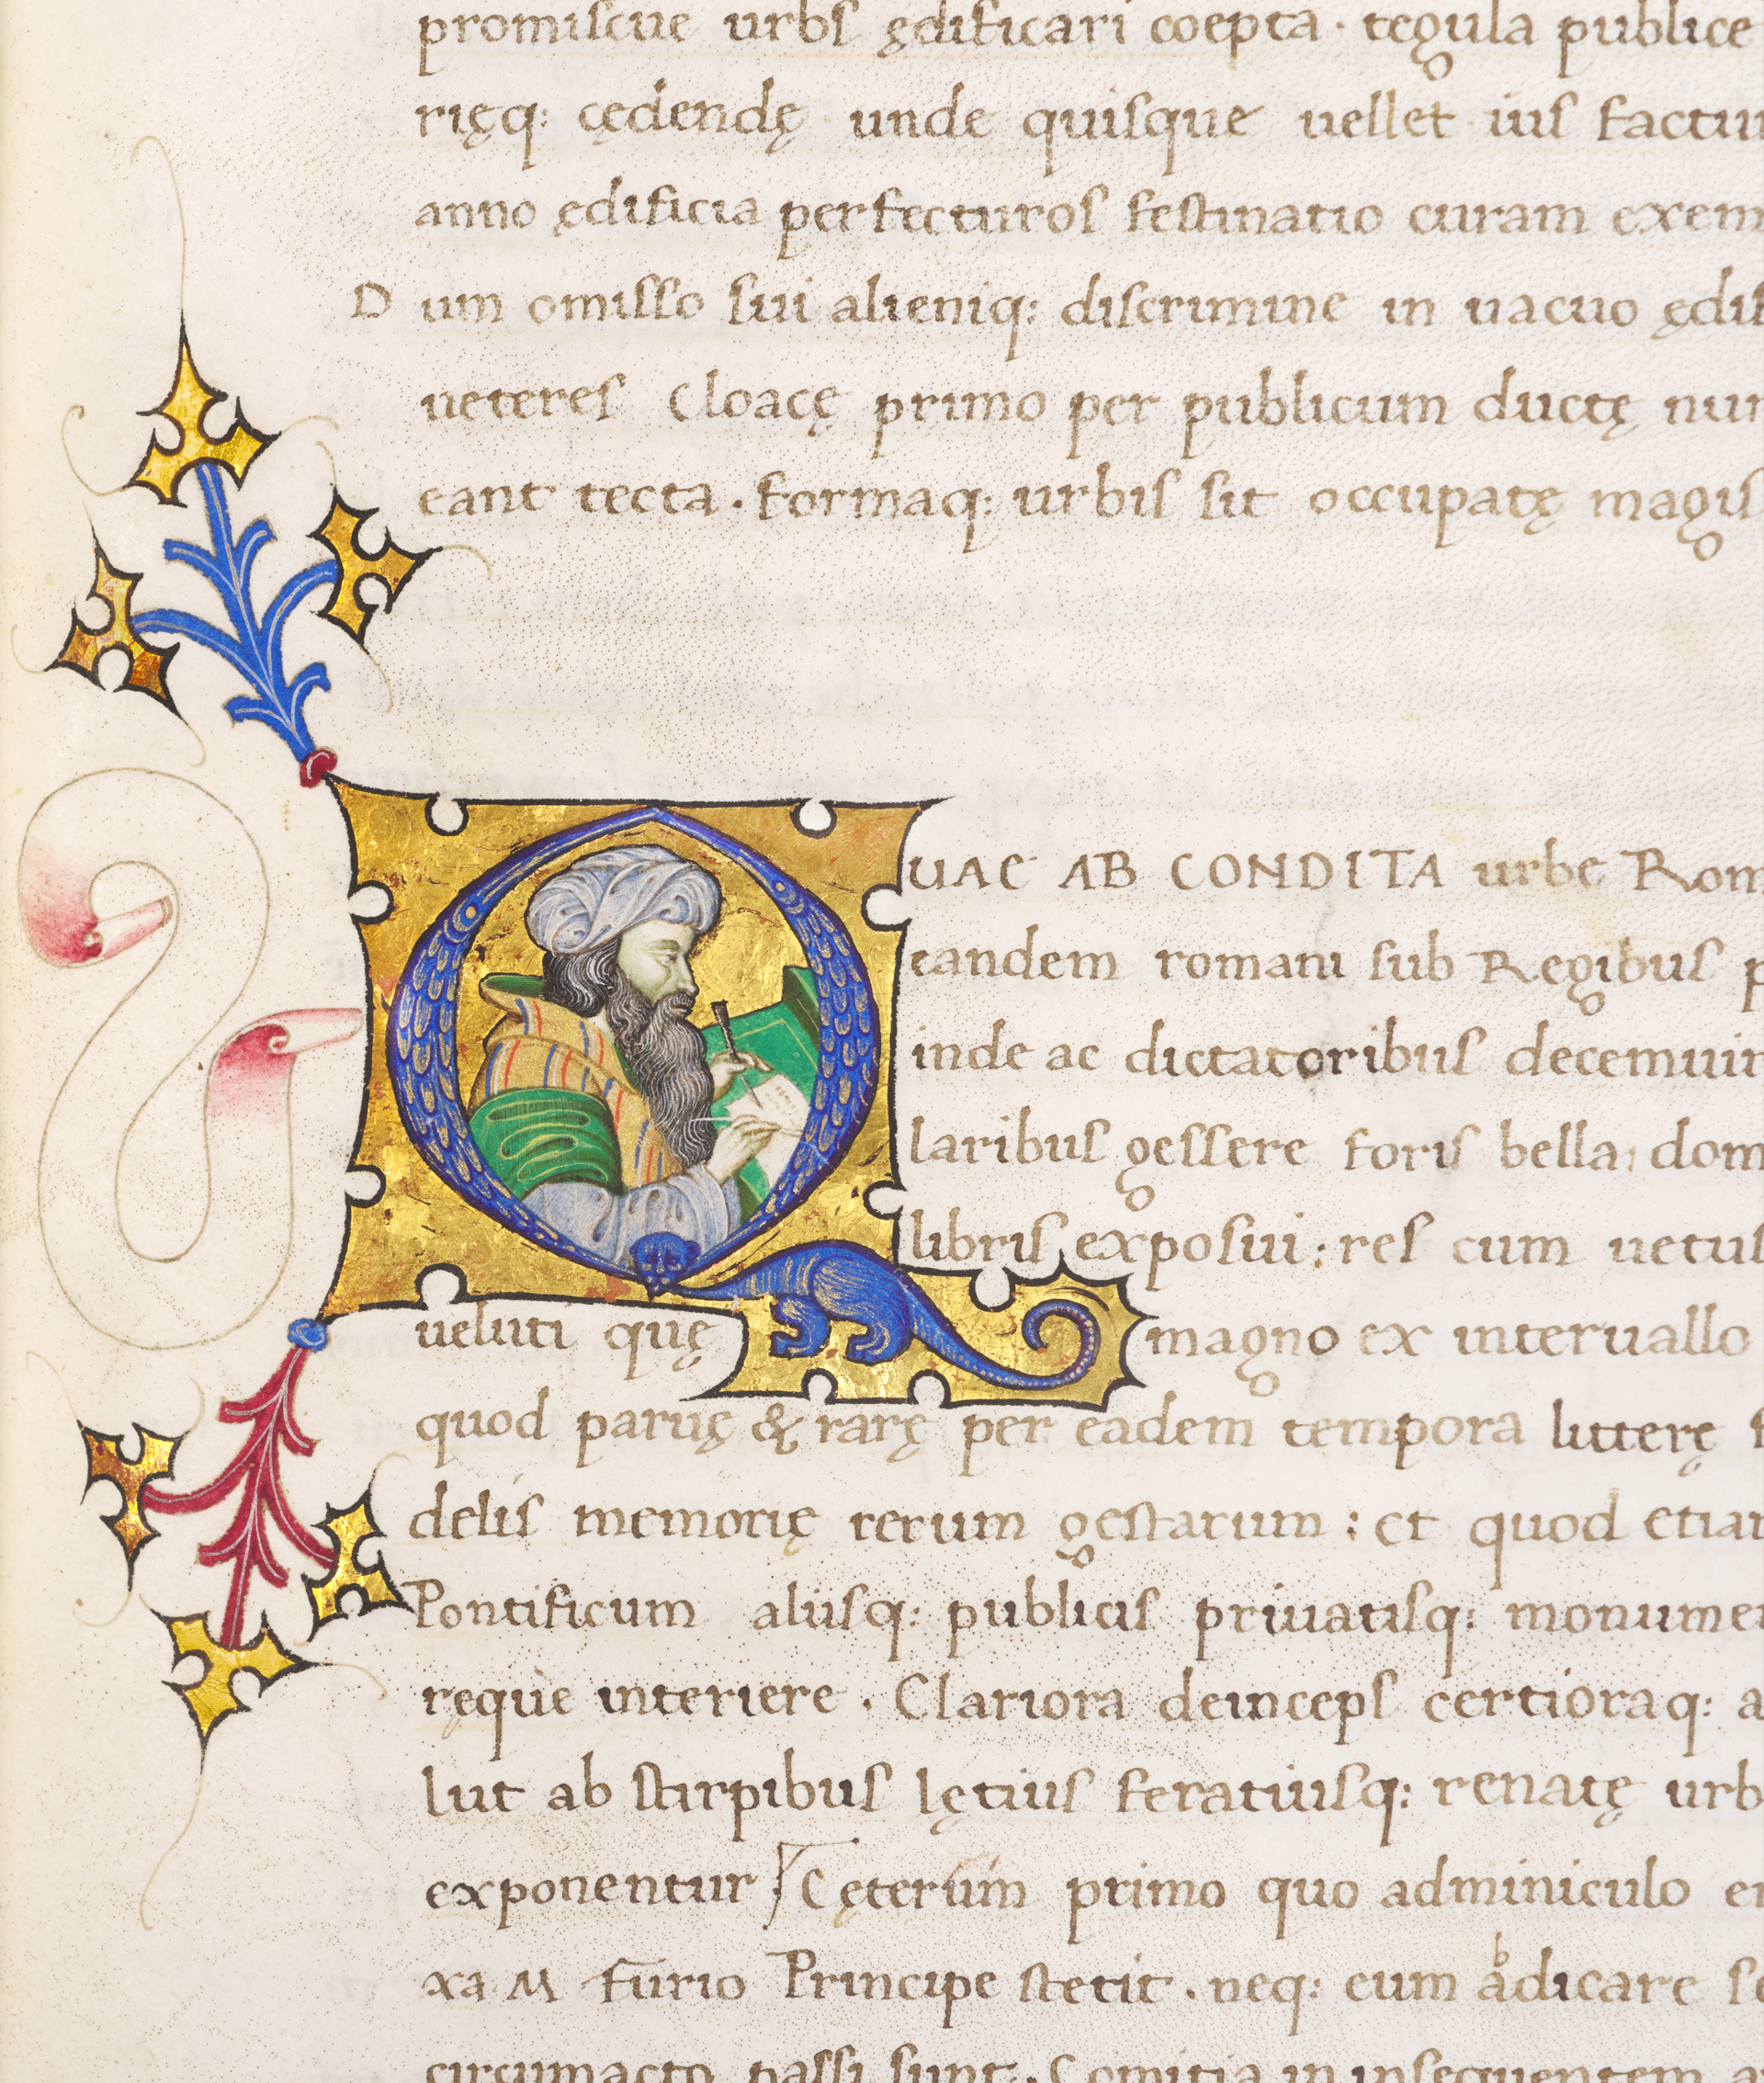 promiscue urbs ędificari coepta · tegula publice
rięq: cędendę unde quisque uellet ius factu
anno ędificia perfecturos festinatio curam exem
Dum omisso sui alieniq: discrimine in uacuo ędif
ueteres Cloacę primo per publicum ductę nun
eant tecta · formaq: urbis sit occupatę magis
QUAE AB CONDITA urbe Rom
eandem romani sub Regibus p
inde ac dictatoribus decemuir
laribus gessere foris bella, dom
libris exposui: res cum uetus
ueluti quę magno ex interuallo
quod paruę & rarę per eadem tempora litterę f
delis memorię rerum gestarum: et quod etiam
Pontificum aliisq: publicis priuatisq: monumen
ręque interiere · Clariora deinceps certioraq: a
lut ab stirpibus lętius feratiusq: renatę urb
exponentur Cęterum primo quo adminiculo er
xa M furio Principe stetit · neq: eum abdicare se
circumacto passi sunt · Comitia in insequentem a